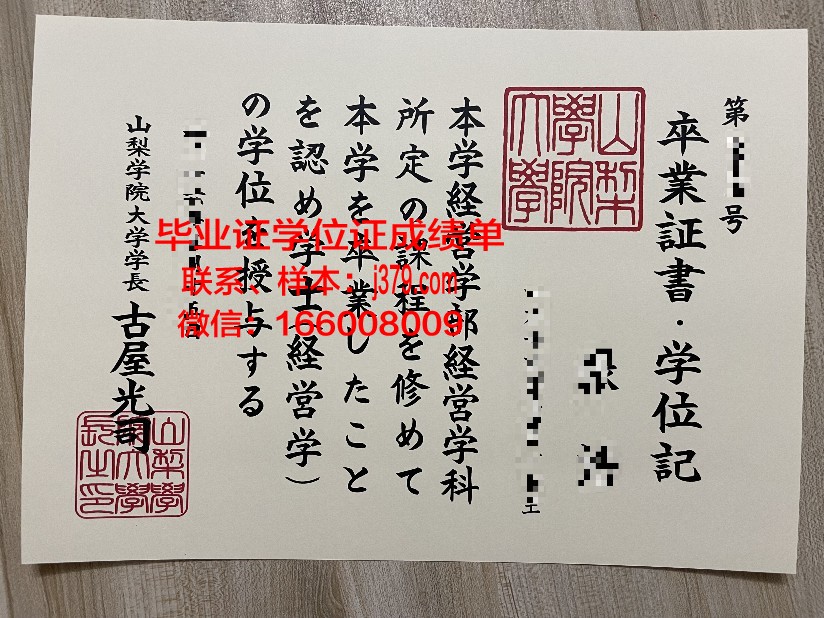 第 号
卒業証書・学位記
山梨
學院
大學
本学経営学部経営学科
所定の課程を修めて
本学を卒業したこと
を認め学士（経営学）
の学位を授与する
山梨学院大学学長 古屋光司
山梨學
院大學
長之印
毕业证学位证成绩单
联系、样本：j379.com
微信：166008009